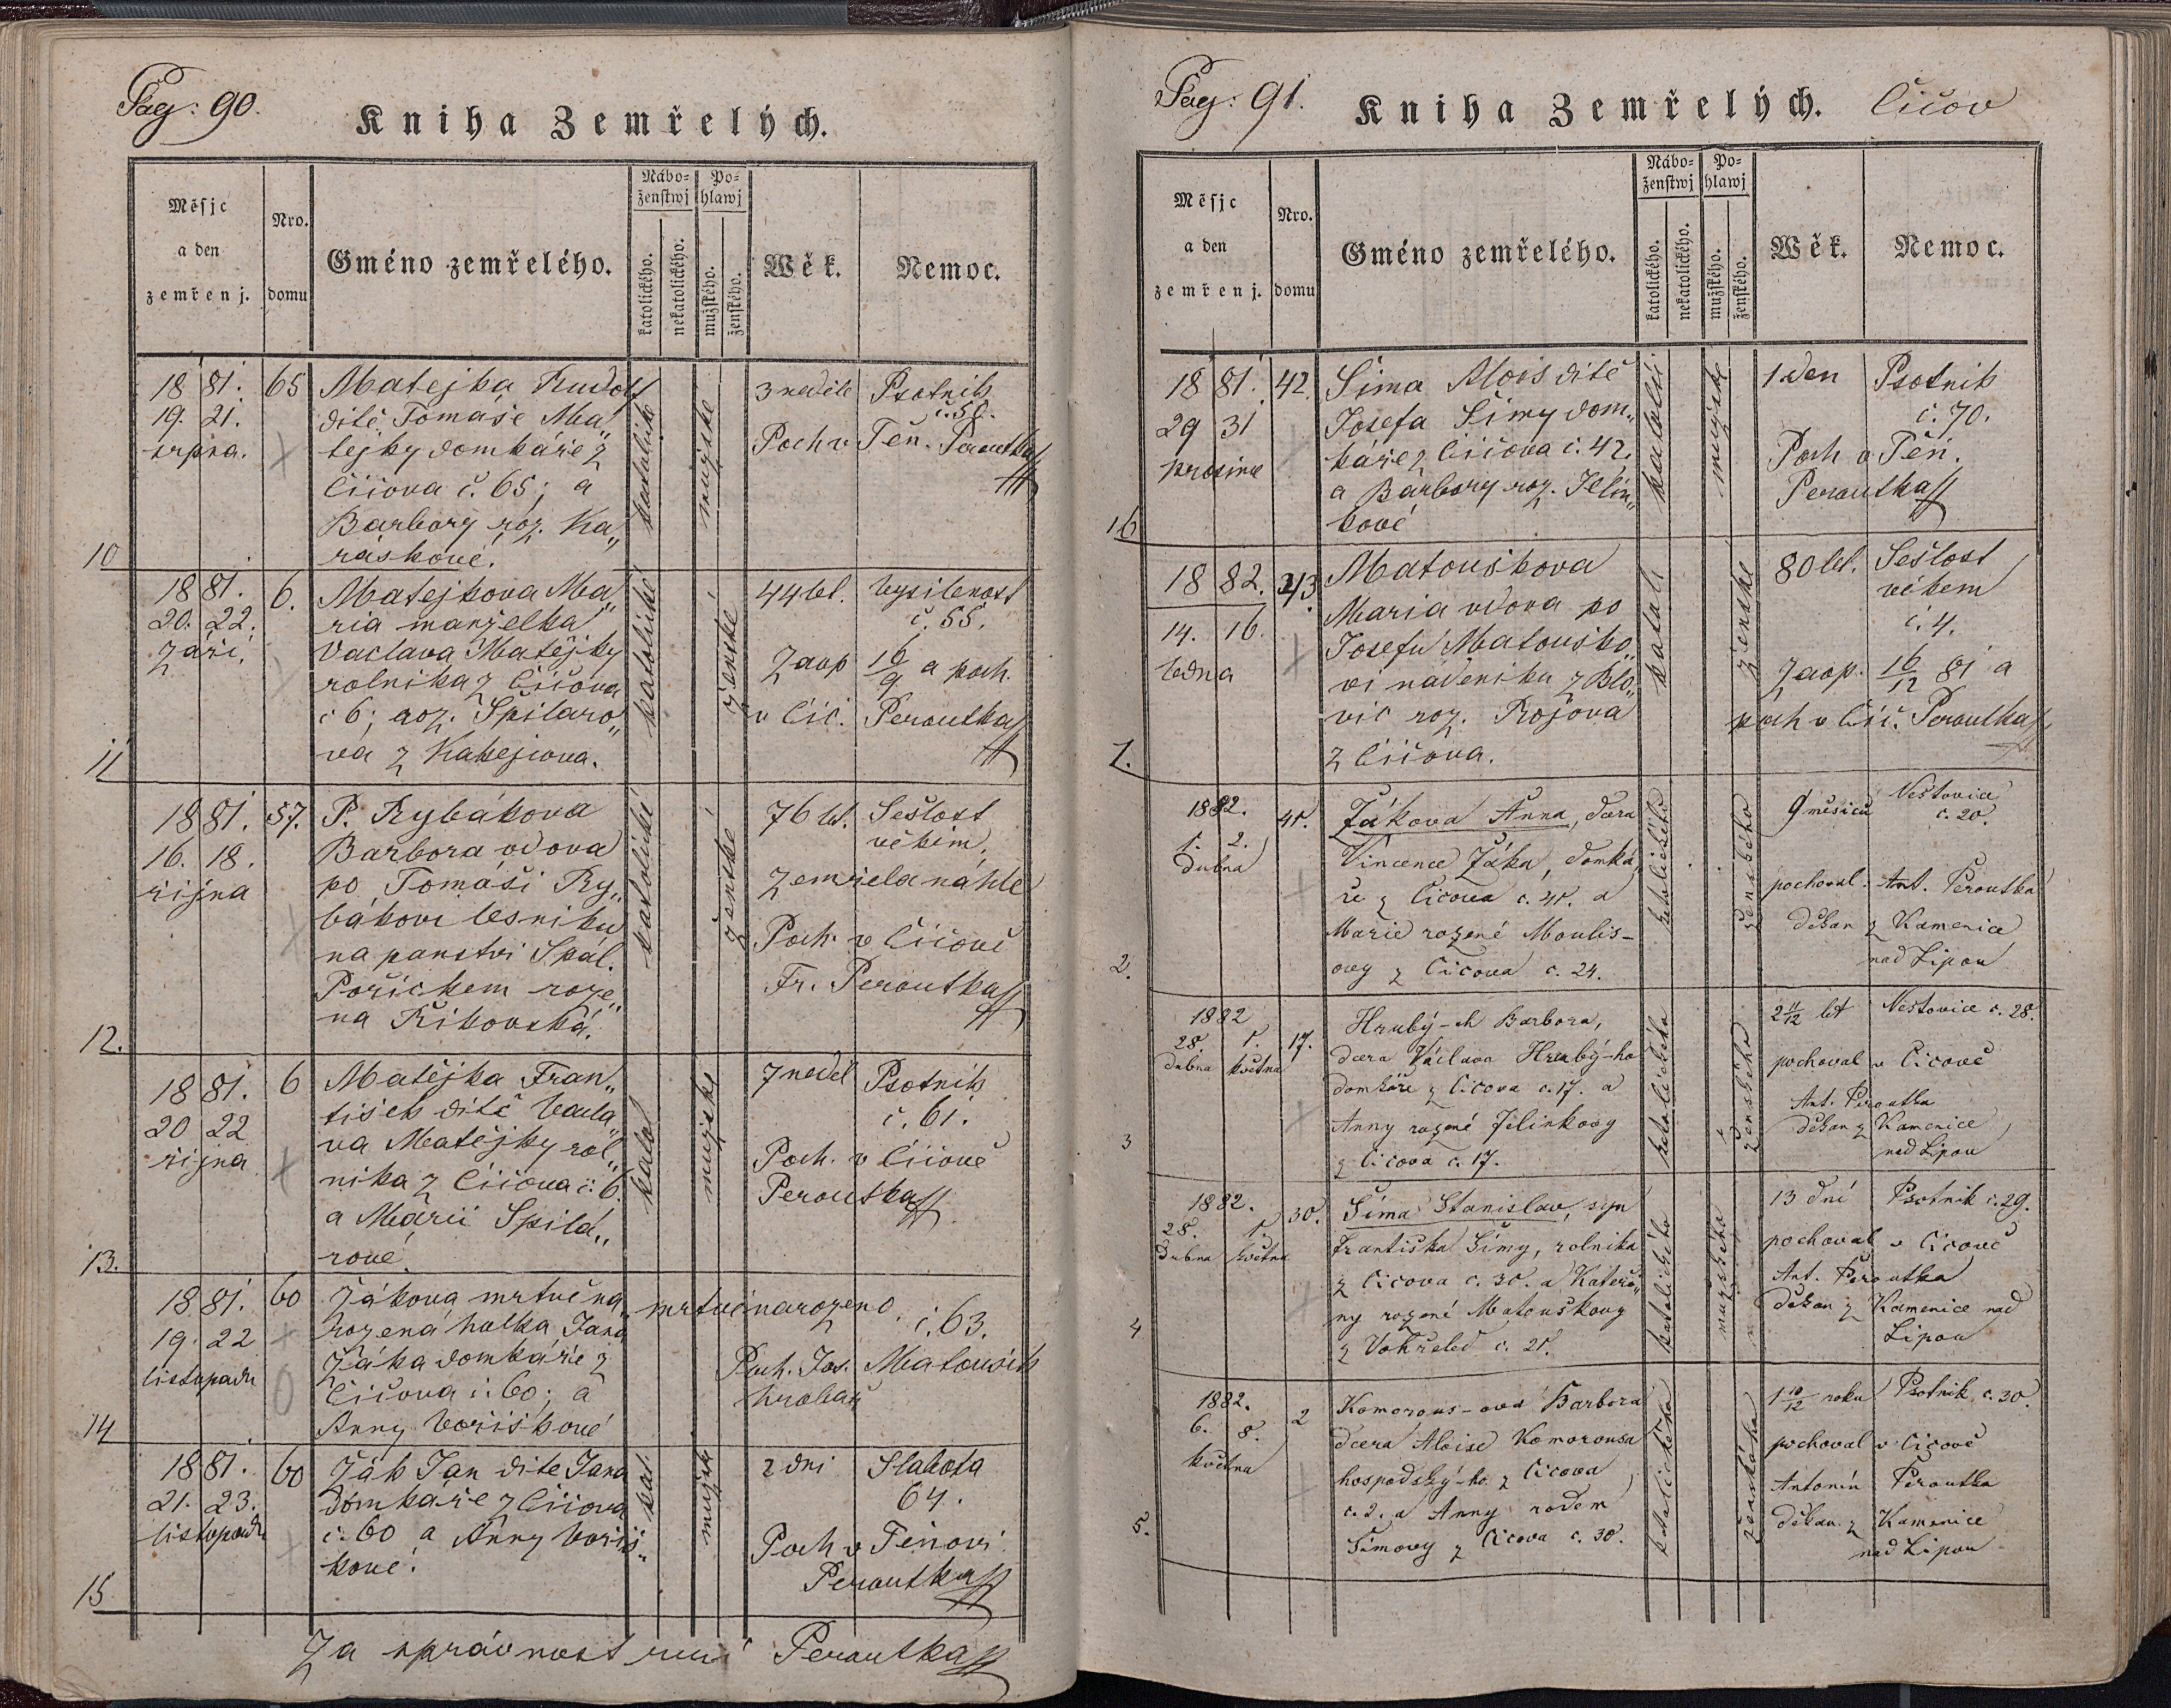 Pag: 90.
Kniha Zemřelých.
Měsjc
a den
zemřenj.
Nro.
domu
Gméno zemřelého.
Nábo=
ženstwj
katolického.
nekatolického.
Po=
hlawj
mužského.
ženského.
Wěk.
Nemoc.
10
1881.
19. 21.
srpna.
65
Matejka Rudolf
dítě Tomáše Ma„
tějky domkáře z
Čičova č. 65; a
Barbory roz. Ka„
ráskové.
katolické
mužské
3 neděle
Psotník
č. 50.
Poch v Těn. Peroutka
11
1881.
20. 22.
září.
6.
Matejkova Ma„
ria manželka
Vaclava Matějky
rolníka z Čičova
č 6; roz. Špilaro„
va z Kakejcova.
katolické
ženské
44 let.
Vysílenost
č. 55.
Zaop 16/9 a poch.
v Čič. Peroutka
12.
1881.
16. 18.
října
57.
P. Rybákova
Barbora vdova
po Tomáši Ry„
bákovi lesníku
na panství Spál.
Poříčkem roze„
na Řikovská.
katolické
ženské
76 let.
Sešlost
věkem,
zemřela náhle
Poch. v Čičově
Fr. Peroutka
13.
1881.
20 22
října
6
Matějka Fran„
tišek dítě Václa„
va Matějky rol„
níka z Čičova č. 6.
a Marii Spilá„
rové.
katol
mužské
7 neděl
Psotník
č. 61.
Poch. v Čičově
Peroutka
14
1881.
19. 22
listopadu
60
Žákova mrtvě na„
rozená holka Jana
Žáka domkáře z
Čičova č. 60; a
Anny Voříškové
mrtvě narozeno
č. 63.
Poch. Jos. Matoušek
hrobař
15
1881.
21. 23.
listopadu
60
Žák Jan dite Jana
domkáře z Čičova
č. 60 a Anny Voříš„
kové.
kat
mužsk
2 dni
Slabota
64.
Poch v Těnovi.
Peroutka
Za správnost ručí Peroutka
Pag: 91.
Kniha Zemřelých.
Čičov
Měsjc
a den
zemřenj.
Nro.
domu
Gméno zemřelého.
Nábo=
ženstwj
katolického.
nekatolického.
Po=
hlawj
mužského.
ženského.
Wěk.
Nemoc.
16
1881.
29 31
prosince
42.
Šima Alois dítě
Josefa Šimy dom„
káře z Čičova č. 42.
a Barbory roz. Jelín„
kové
katolické
mužské
1 den
Psotník
č. 70.
Poch v Těn.
Peroutka
1.
1882.
14. 16.
ledna
43.
Matouškova
Maria vdova po
Josefu Matouško„
vi nádeníku z Blo„
vic roz. Rojova
z Čičova.
katol
ženské
80 let.
Sešlost
věkem
č. 4.
Zaop. 16/12 81 a
poch v Čič. Peroutka
2.
1882.
1. 2.
Dubna
41.
Žákova Anna, dcera
Vincence Žáka, domká„
ře z Čičova č. 41. a
Marie rozené Moulis-
ovy z Čičova č. 24.
katolického
ženského
9 měsíců
Neštovice
č. 20.
pochoval. Ant. Peroutka
děkan z Kamenice
nad Lipou
3
1882
28. 1.
dubna května
17.
Hrubý-ch Barbora,
dcera Václava Hrubý-ho
domkáře z Čičova č. 17. a
Anny rozené Jelínkovy
z Čičova č. 17.
katolického
ženského
2 11/12 let
Neštovice č. 28.
pochoval v Čičově
Ant. Peroutka
děkan z Kamenice
nad Lipou
4
1882.
28. 1.
Dubna května
30.
Šíma Stanislav, syn
Františka Šímy, rolníka
z Čičova č. 30. a Kateři„
ny rozené Matouškovy
z Vokřeled č. 21.
katolického
mužského
13 dní
Psotník č. 29.
pochoval v Čičově
Ant. Peroutka
děkan z Kamenice nad
Lipou
5.
1882.
6. 8.
května
2
Komorous-ova Barbora
dcera Aloise Komorousa
hospodský-ho z Čičova
č. 2. a Anny rodem
Šímovy z Čičova č. 30.
katolického
ženského
1 10/12 roku
Psotník č. 30.
pochoval v Čičově
Antonín Peroutka
děkan z Kamenice
nad Lipou